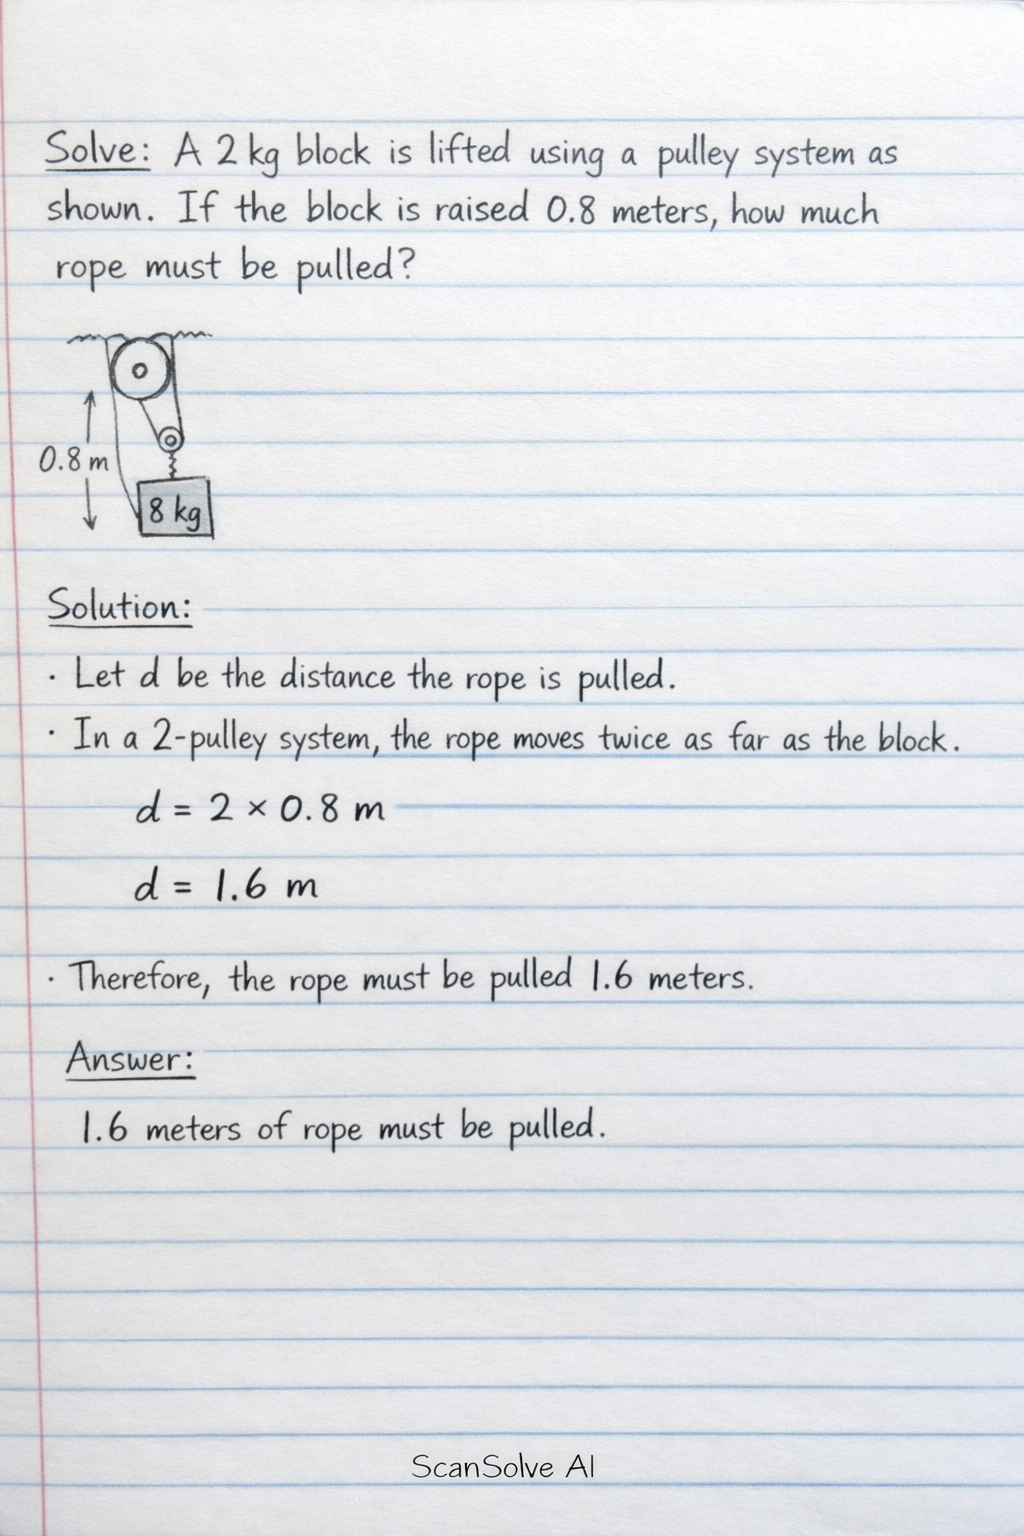 Solve: A 2 kg block is lifted using a pulley system as
shown. If the block is raised 0.8 meters, how much
rope must be pulled?
0.8 m
8 kg
Solution:
· Let d be the distance the rope is pulled.
· In a 2-pulley system, the rope moves twice as far as the block.
d = 2 × 0.8 m
d = 1.6 m
· Therefore, the rope must be pulled 1.6 meters.
Answer:
1.6 meters of rope must be pulled.
ScanSolve AI